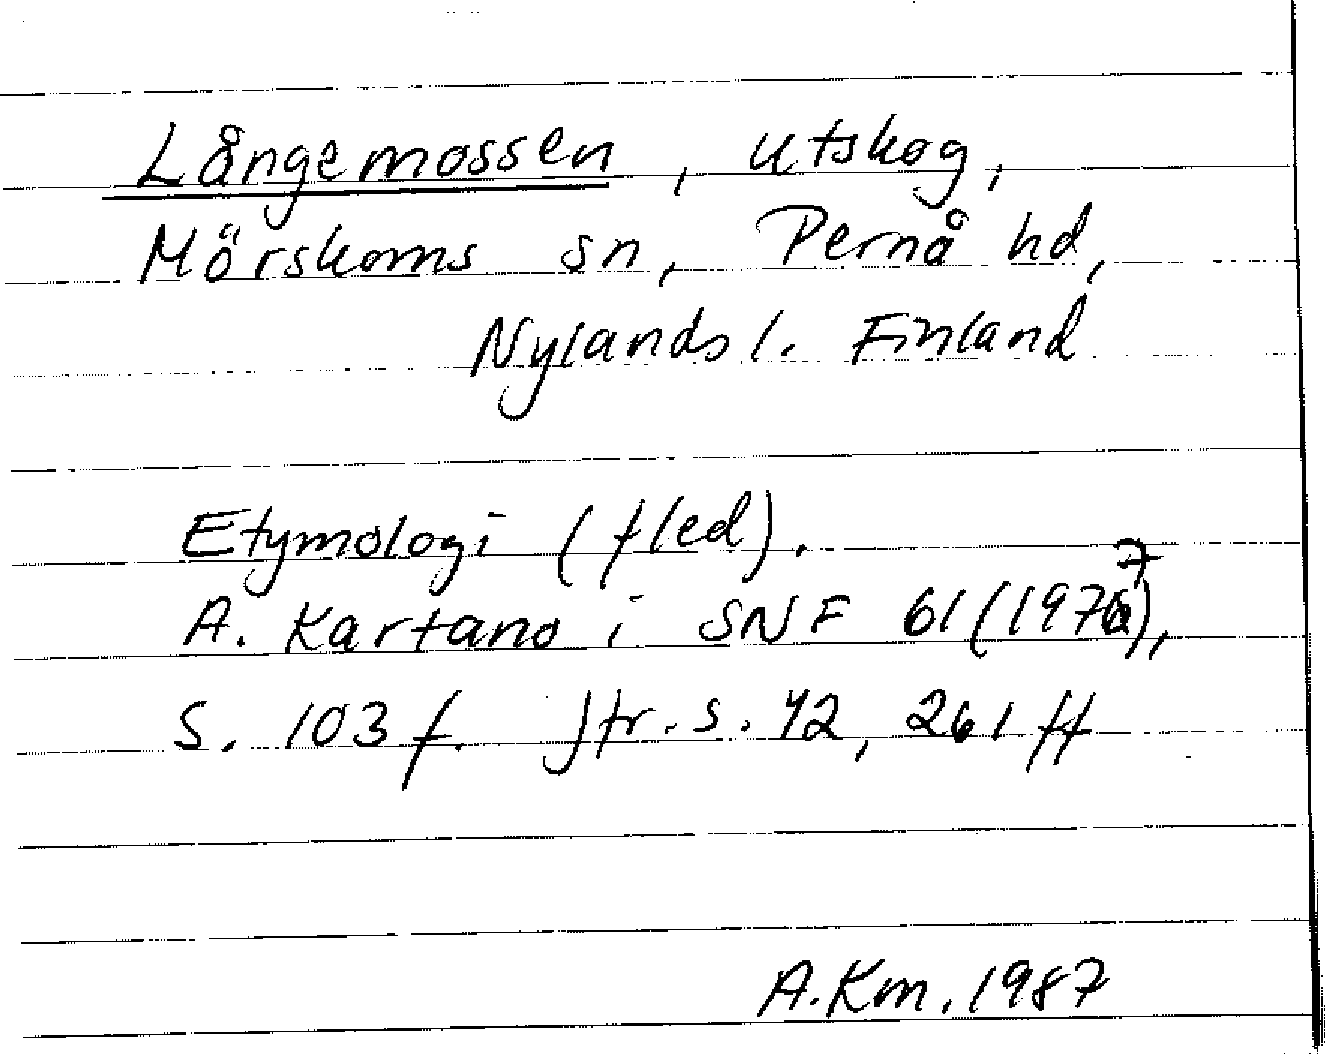 Långemossen, utskog,
Mörskoms sn, Pernå hd,
Nylands l. Finland
Etymologi (fled).
A. Kartano i SNF 61 (1977),
S. 103 f. Jfr. s. 42, 261 ff
A.Km. 1987